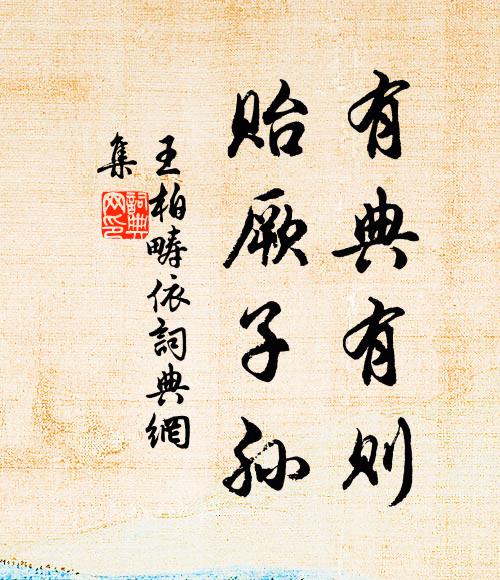 有典有则
贻厥子孙
王柏畴依詞典網
集
詞典网印